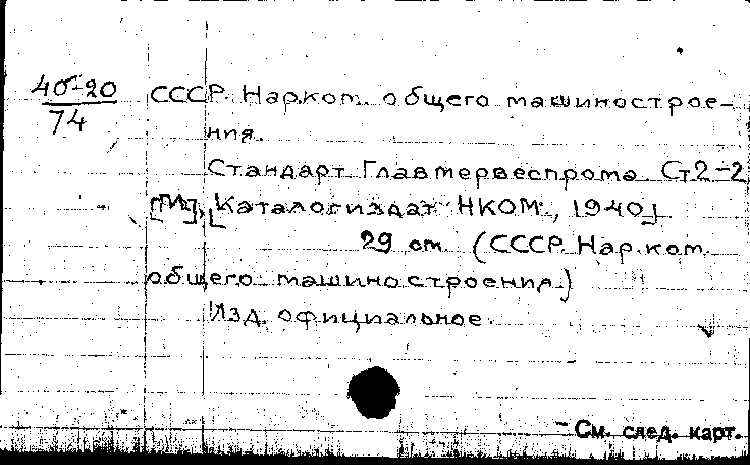 40-20 СССР. Нар.ком. общего машинострое-
74 ния.
Стандарт Главтервеспрома Ст2-2
[М.], [Каталогиздат НКОМ, 1940]
29 см (СССР. Нар.ком.
общего машиностроения)
Изд. официальное.
См. след. карт.